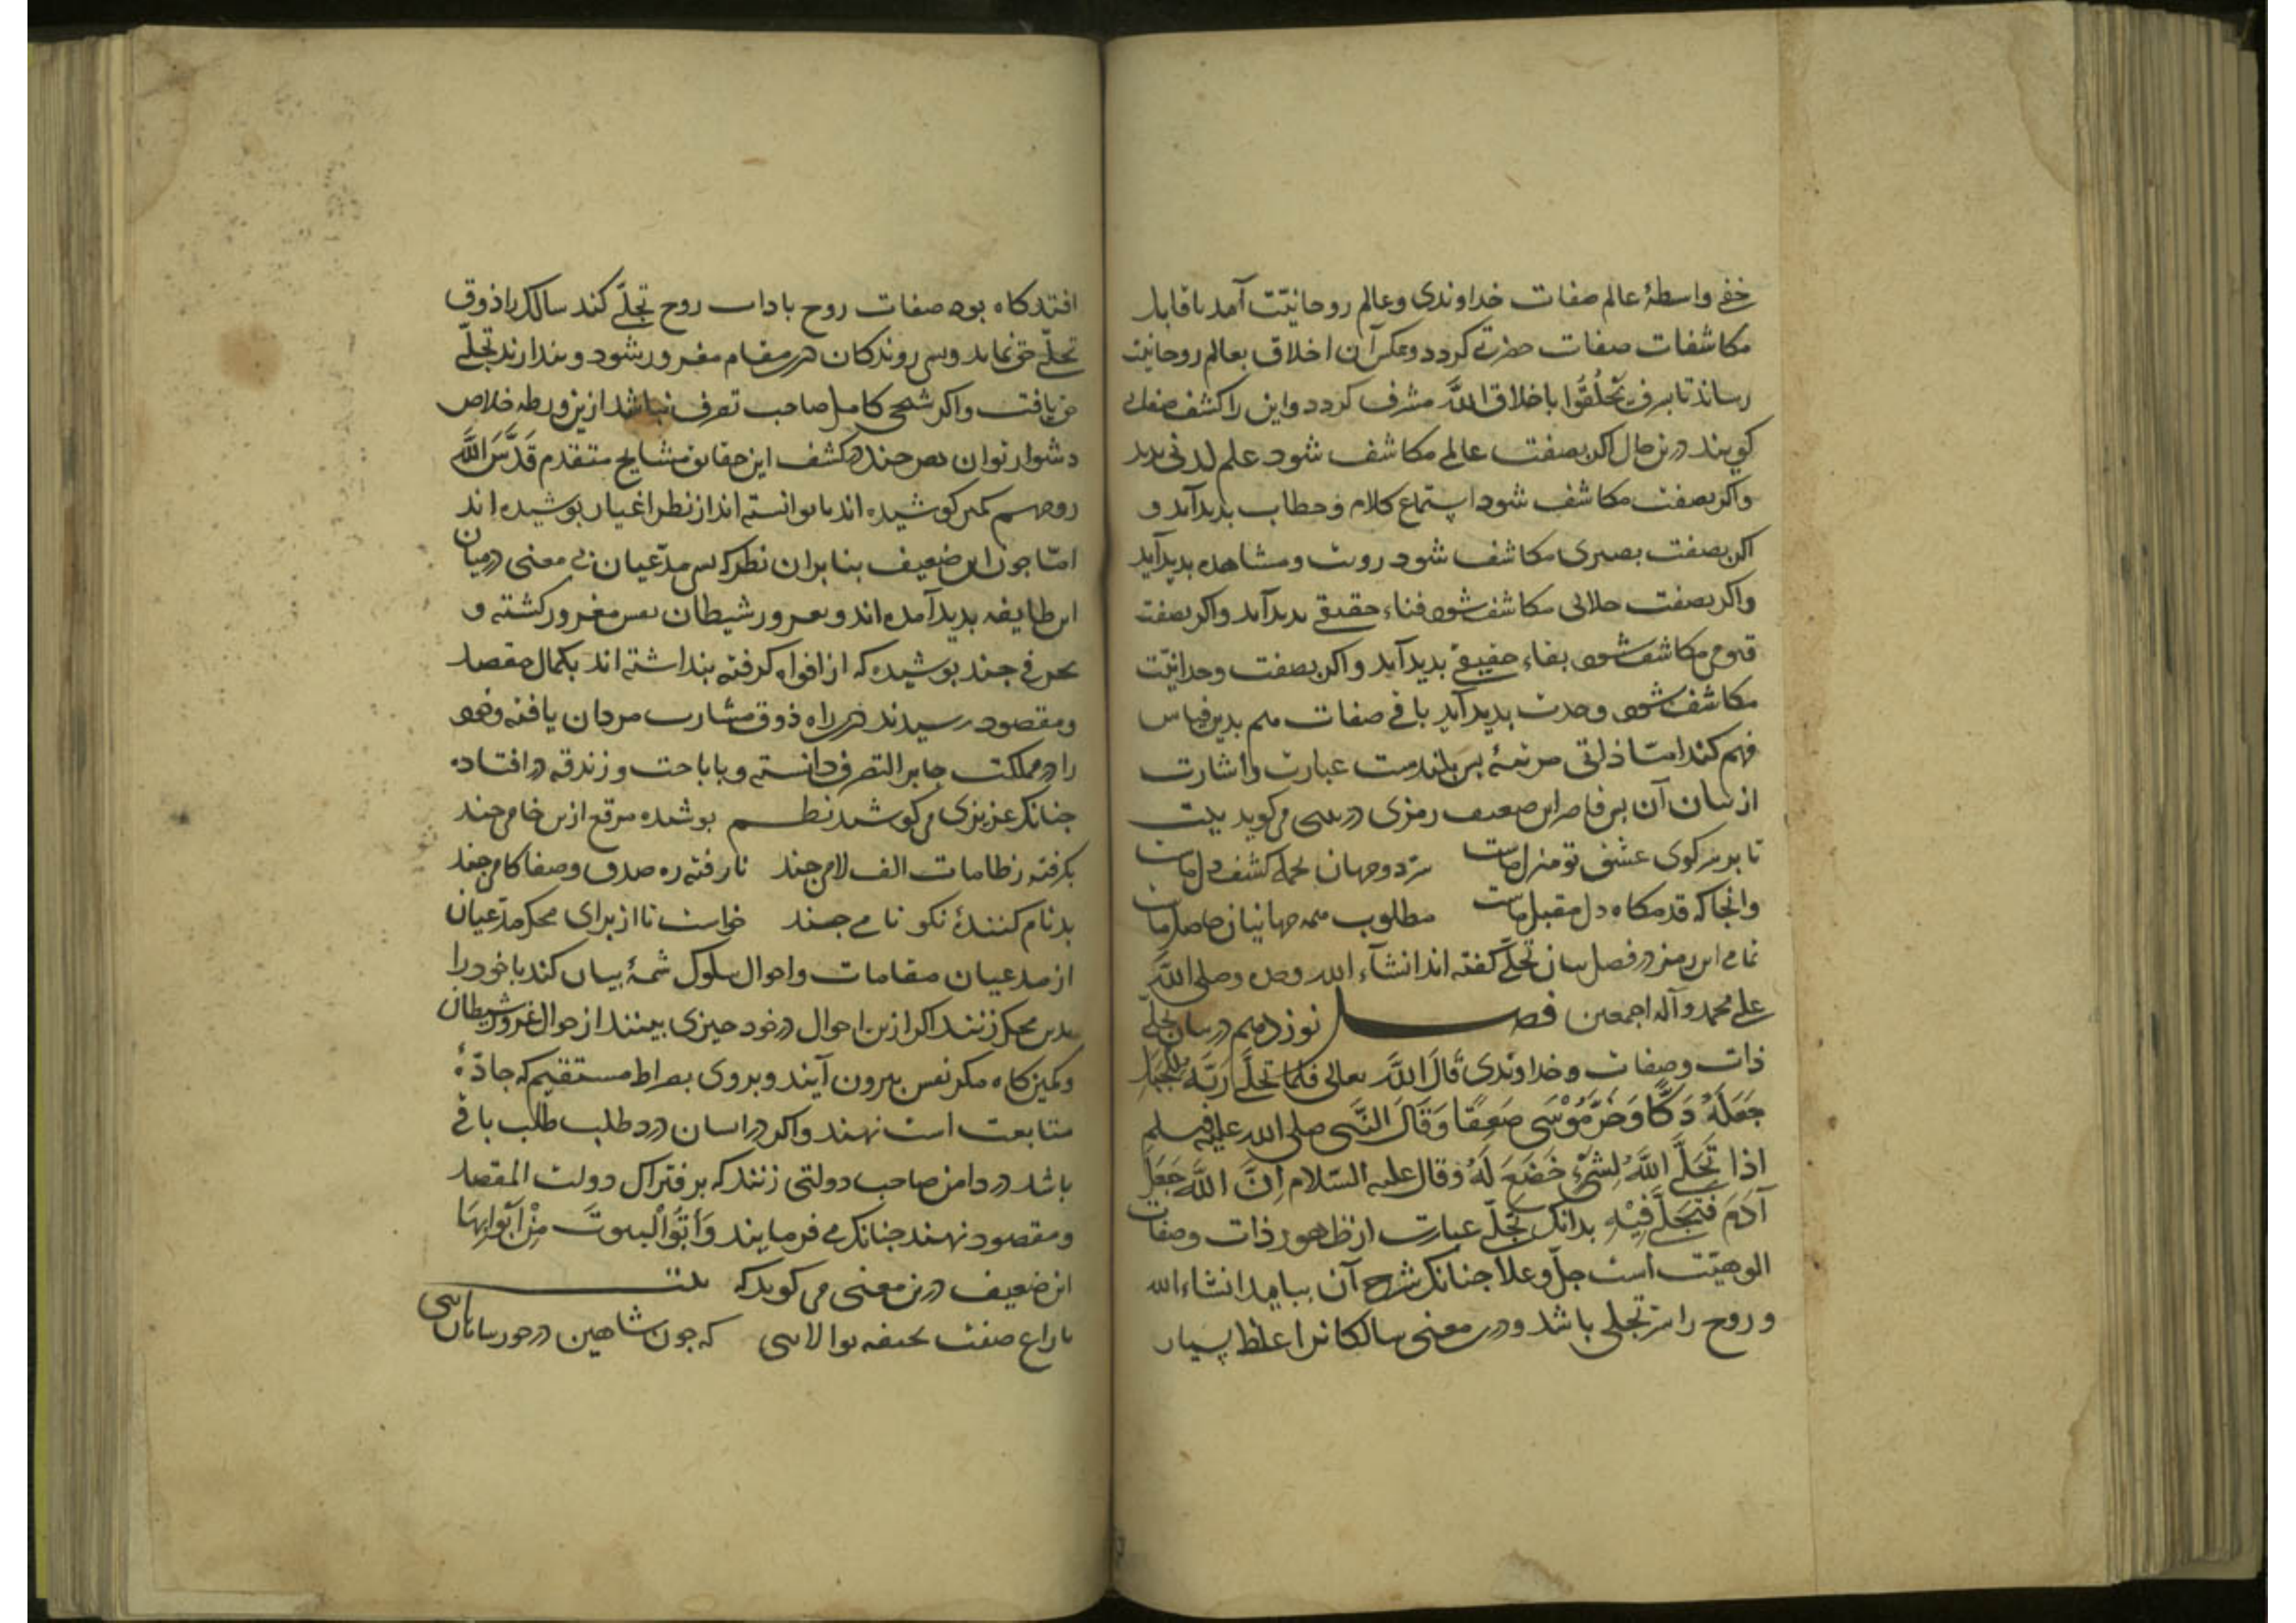 خفی واسطهٔ عالم صفات خداوندی وعالم روحانیّت آمد تا قابل
مکاشفات صفات حضرتی کردد وعکس آن اخلاق بعالم روحانیت
رساند تا بشرف تَخَلَّقُوا باخلاق اللَّه مشرف کردد واین را کشف صفاتی
کویند درین حال اکر بصفت عالمی مکاشف شود علم لدنی پدید
واکر بصفت مکاشف شود استماع کلام وخطاب پدید آید و
اکر بصفت بصیری مکاشف شود رویت ومشاهده پدید آید
واکر بصفت جلالی مکاشف شود فناء حقیقی پدید آید واکر بصفت
قیومی مکاشف شود بقاء حقیقی پدید آید واکر بصفت وحدانیّت
مکاشف شود وحدت پدید آید باقی صفات هم بدین قیاس
فهم کند امّا ذاتی مرتبهٔ بس بلندست عبارت واشارت
از بیان آن قاصر این ضعیف رمزی در بیتی می کوید بیت
تا بر سر کوی عشق تو منزل ماست سرّ دو جهان بجمله کشف دل ماست
وانجا که قدمکاه دل مقبل ماست مطلوب همه جهانیان حاصل ماست
تمامی این رمز در فصل بیان تجلّی کفته اند انشآء الله وحده وصلی اللَّه
علی محمد وآله اجمعین فصل نوزدهم در بیان تجلّی
ذات وصفات وخداوندی قَالَ اللَّه تعالی فَلَمَّا تَجَلَّی رَبُّهُ لِلْجَبَلِ
جَعَلَهُ دَکًّا وَخَرَّ مُوْسَی صَعِقًا وَقَالَ النَّبی صلی الله علیه وسلم
اذا تَجَلَّی اللَّهُ لِشَیْءٍ خَضَعَ لَهُ وَقال علیه السّلام اِنَّ اللَّهَ جَعَلَ
آدَمَ فَتَجَلَّی فِیْهِ بدانک تجلّی عبارت از ظهور ذات وصفات
الوهیّت است جلّ وعلا جنانک شرح آن بیاید انشاء الله
و روح را نیز تجلی باشد ودرین معنی سالکانرا غلط بسیار
افتد کاه بود صفات روح با ذات روح تجلّی کند سالک را ذوق
تجلّی حق نماید وبسی روندکان درین مقام مغرور شود وپندارند تجلّی
حق یافت واکر شیخی کامل صاحب تصرف نباشد ازین ورطه خلاص
دشوار توان هر جند در کشف این حقایق مشایخ متقدم قَدَّسَ اللَّه
روحهم کمتر کوشیده اند تا توانسته اند از نظر اغیار پوشیده اند
امّا جون این ضعیف بنا بران نظر که بس مدّعیان بی معنی درمیان
این طایفه پدید آمده اند وبغرور شیطان نفس مغرور کشته و
بحرفی جند پوشیده که از افواه کرفته پنداشته اند بکمال مقصد
ومقصود رسیدند در راه ذوق مشارب مردان یافته وخود
را در مملکت جایز التصرف دانسته وبا اباحت وزندقه در افتاده
جنانک عزیزی می کوید نظم پوشیده مرقع ازین خامی جند
بکرفته ز طامات الف لامی جند نا رفته ره صدق وصفا کامی جند
بدنام کنندهٔ نکو نامی جند خواست تا از برای محک مدّعیان
از مدعیان مقامات واحوال سلوک شمهٔ بیان کند تا خود را
بدین محک زنند اکر ازین احوال در خود جیزی بینند از جوال غرور شیطان
وکمین کاه مکر نفس بیرون آیند وبروی بصراط مستقیم که جادّهٔ
متابعت است نهند واکر در ایشان درد طلب طلب باقی
باشد در دامن صاحب دولتی زنند که بر فتراک دولت المقصد
ومقصود نهند جنانک می فرمایند وَأْتُوا الْبیوتَ مِنْ اَبْوَابِهَا
این ضعیف درین معنی می کوید که بیت